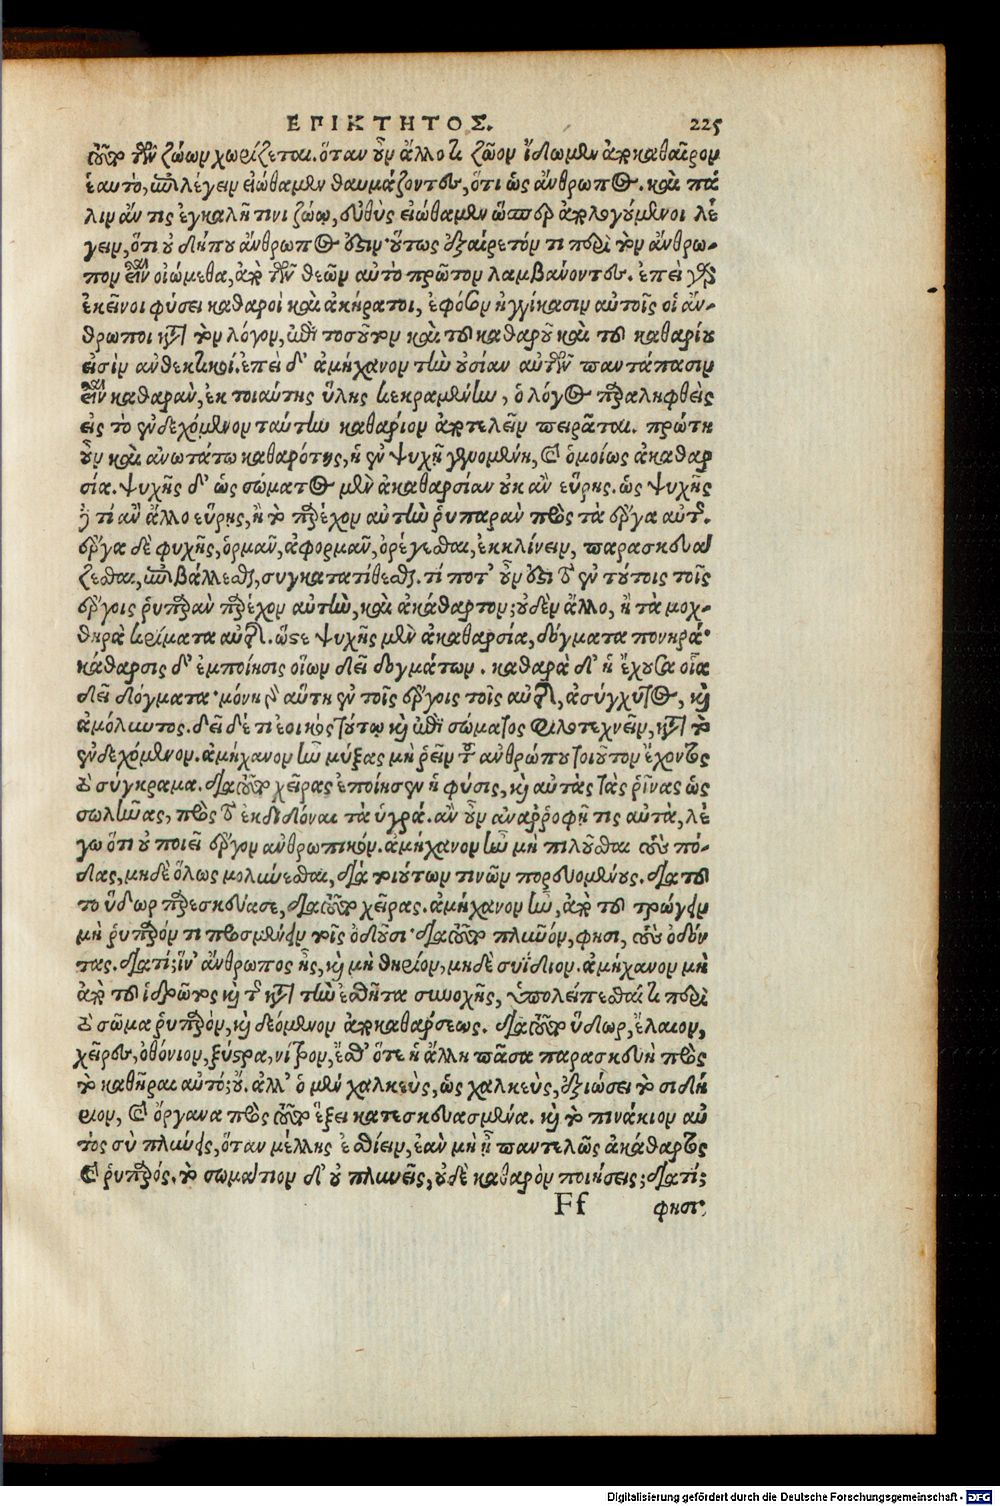 ΕΠΙΚΤΗΤΟΣ. 225
τῶν ζώων χωρίζεται. ὅταν οὖν ἄλλό τι ζῶον ἴδωμεν ἀποκαθαῖρον
ἑαυτὸ, ἐπιλέγειν εἰώθαμεν θαυμάζοντες, ὅτι ὡς ἄνθρωπος. καὶ πά
λιν ἄν τις ἐγκαλῇ τινι ζώῳ, εὐθὺς εἰώθαμεν ὥσπερ ἀπολογούμενοι λέ
γειν, ὅτι οὐ δήπου ἄνθρωπός ἐστιν· οὕτως ἐξαίρετόν τι περὶ τὸν ἄνθρω-
πον εἶναι οἰώμεθα, ἀπὸ τῶν θεῶν αὐτὸ πρῶτον λαμβάνοντες. ἐπεὶ γὰρ
ἐκεῖνοι φύσει καθαροὶ καὶ ἀκήρατοι, ἐφόσον ἠγγίκασιν αὐτοῖς οἱ ἄν-
θρωποι κατὰ τὸν λόγον, ἐπὶ τοσοῦτον καὶ τοῦ καθαροῦ καὶ τοῦ καθαρίου
εἰσὶν ἀνθεκτικοί. ἐπεὶ δ' ἀμήχανον τὴν οὐσίαν αὐτῶν παντάπασιν
εἶναι καθαρὰν, ἐκ τοιαύτης ὕλης κεκραμένην, ὁ λόγος παραληφθεὶς
εἰς τὸ ἐνδεχόμενον ταύτην καθάριον ἀποτελεῖν πειρᾶται. πρώτη
οὖν καὶ ἀνωτάτω καθαρότης, ἡ ἐν ψυχῇ γενομένη, καὶ ὁμοίως ἀκαθαρ
σία. ψυχῆς δ' ὡς σώματος μὲν ἀκαθαρσίαν οὐκ ἂν εὕρης. ὡς ψυχῆς
δὲ τί ἂν ἄλλο εὕρης, ἢ τὸ παρέχον αὐτὴν ῥυπαρὰν πρὸς τὰ ἔργα αὐτῆς.
ἔργα δὲ ψυχῆς, ὁρμᾶν, ἀφορμᾶν, ὀρέγεσθαι, ἐκκλίνειν, παρασκευά
ζεσθαι, ἐπιβάλλεσθαι, συγκατατίθεσθαι. τί ποτ' οὖν ἐστι τὸ ἐν τούτοις τοῖς
ἔργοις ῥυπαρὰν παρέχον αὐτὴν, καὶ ἀκάθαρτον; οὐδὲν ἄλλο, ἢ τὰ μοχ-
θηρὰ κρίματα αὐτῆς. ὥστε ψυχῆς μὲν ἀκαθαρσία, δόγματα πονηρά·
κάθαρσις δ' ἐμποίησις οἵων δεῖ δογμάτων. καθαρὰ δ' ἡ ἔχουσα οἷα
δεῖ δόγματα· μόνη γὰρ αὕτη ἐν τοῖς ἔργοις τοῖς αὐτῆς, ἀσύγχυτος, καὶ
ἀμόλυντος. δεῖ δέ τι ἐοικὸς τούτῳ καὶ ἐπὶ σώματος φιλοτεχνεῖν, κατὰ τὸ
ἐνδεχόμενον. ἀμήχανον ἦν μύξας μὴ ῥεῖν τοῦ ἀνθρώπου τοιοῦτον ἔχοντος
τὸ σύγκραμα. διὰ τοῦτο χεῖρας ἐποίησεν ἡ φύσις, καὶ αὐτὰς τὰς ῥῖνας ὡς
σωλῆνας, πρὸς τὸ ἐκδιδόναι τὰ ὑγρά. ἂν οὖν ἀναῤῥοφῇ τις αὐτὰ, λέ
γω ὅτι οὐ ποιεῖ ἔργον ἀνθρωπικόν. ἀμήχανον ἦν μὴ πηλοῦσθαι τοὺς πό-
δας, μηδὲ ὅλως μολύνεσθαι, διὰ τοιούτων τινῶν πορευομένους. διὰ τοῦ
το ὕδωρ παρεσκεύασε, διὰ τοῦτο χεῖρας. ἀμήχανον ἦν, ἀπὸ τοῦ τρώγειν
μὴ ῥυπαρόν τι προσμένειν τοῖς ὀδοῦσι· διὰ τοῦτο πλῦνον, φησι, τοὺς ὀδόν
τας. διατί; ἵν' ἄνθρωπος ᾖς, καὶ μὴ θηρίον, μηδὲ συΐδιον. ἀμήχανον μὴ
ἀπὸ τοῦ ἱδρῶτος καὶ τῆς κατὰ τὴν ἐσθῆτα συνοχῆς, ὑπολείπεσθαί τι περὶ
τὸ σῶμα ῥυπαρὸν, καὶ δεόμενον ἀποκαθάρσεως. διὰ τοῦτο ὕδωρ, ἔλαιον,
χεῖρες, ὀθόνιον, ξύστρα, νίτρον, ἔσθ' ὅτε ἡ ἄλλη πᾶσα παρασκευὴ πρὸς
τὸ καθῆραι αὐτό; οὔ. ἀλλ' ὁ μὲν χαλκεὺς, ὡς χαλκεὺς, ἐξιώσει τὸ σιδή
ριον, καὶ ὄργανα πρὸς τοῦτο ἕξει κατεσκευασμένα. καὶ τὸ πινάκιον αὐ
τὸς σὺ πλυνεῖς, ὅταν μέλλης ἐσθίειν, ἐὰν μὴ ᾖ παντελῶς ἀκάθαρτος
καὶ ῥυπαρός. τὸ σωμάτιον δ' οὐ πλυνεῖς, οὐδὲ καθαρὸν ποιήσεις; διατί;
Ff φησι·
Digitalisierung gefördert durch die Deutsche Forschungsgemeinschaft - DFG